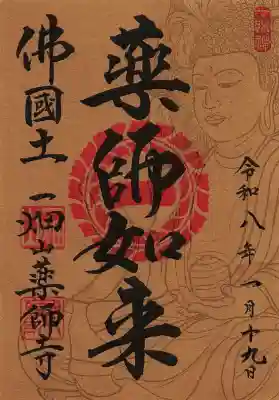 令和八年 一月十九日
藥師如来
佛國土 一畑山藥師寺